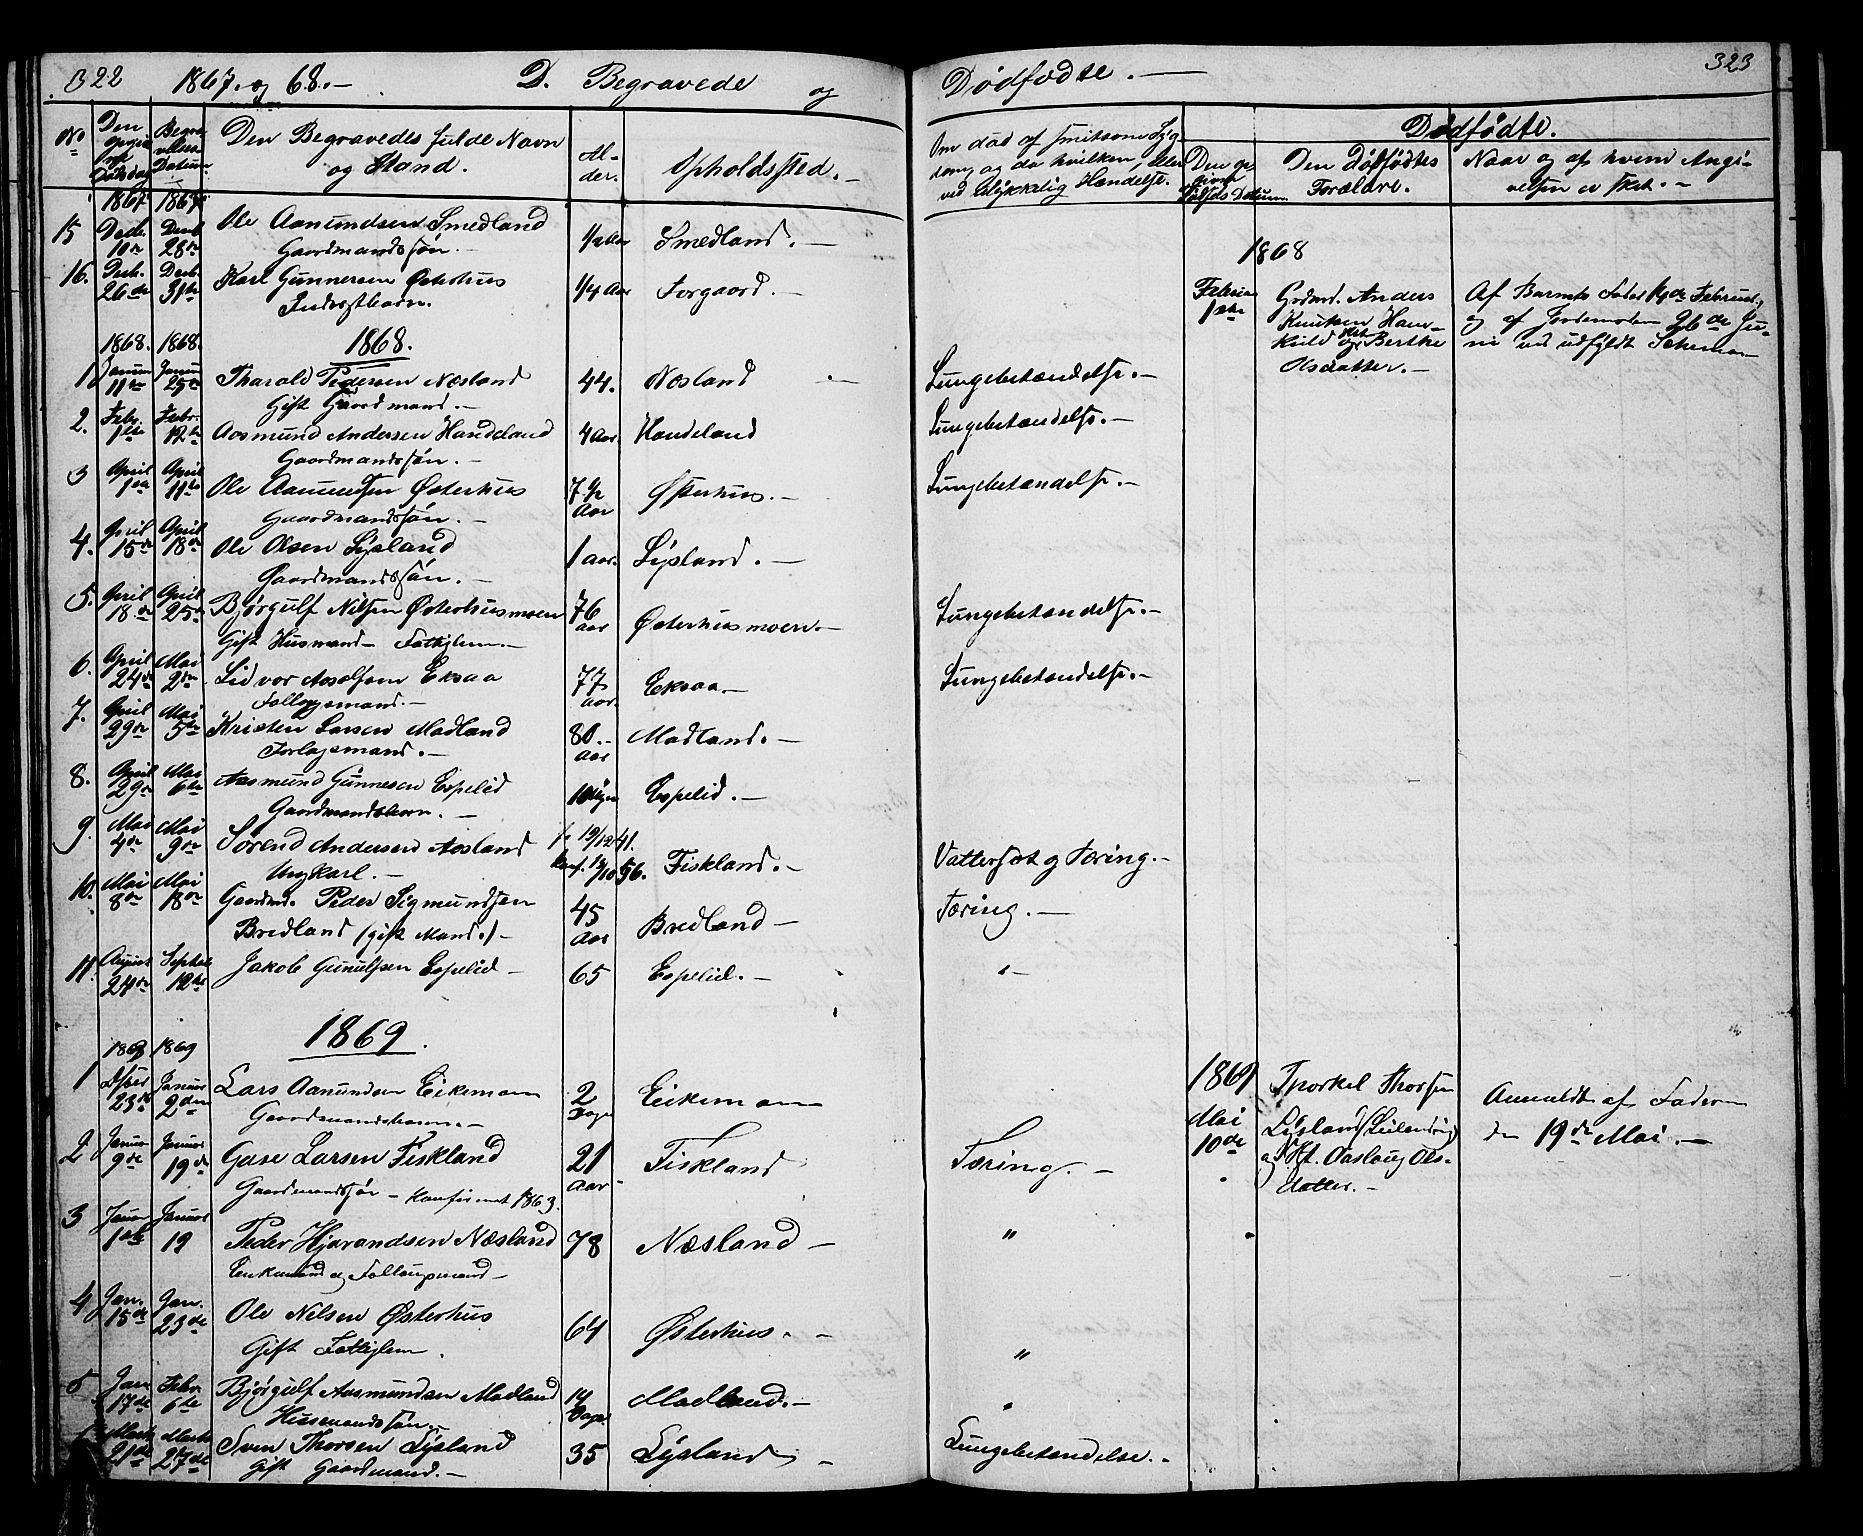 322 1867. og 68. — D. Begravede og
No
Den opgivne Dødsdag
Begravelses Datum.
Den Begravedes fulde Navn og Stand.
Alder.
Opholdssted. —
1867 1867
15 Decb. 10de Decb. 28de Ole Aanundsen Smedland 1/2 Aar Smedland. —
Gaardmandssøn. —
16. Decb. 26de Decb. 31te Karl Gunnersen Østerhus 1/4 Aar Torgaard. —
Inderstbarn.
1868. 1868. 1868.
1 Januar 11te Januar 25de Tharald Pedersen Næsland 44. Næsland —
Gift Gaardmand. —
2. Febr. 1ste Febr. 12te Aasmund Andersen Handeland 4 Aar. Handeland
Gaardmandssøn. —
3 April 1ste April 11te Ole Aanundsen Østerhus 7 1/2 Aar Østerhus. —
Gaardmandssøn. —
4. April 15de April 18de Ole Olsen Lysland 1 aar. Lysland. —
Gaardmandssøn. —
5. April 18de April 25de Bjørgulf Nilsen Østerhusmoen 76 aar Østerhusmoen. —
Gift Husmand — Fattiglem. —
6. April 24de Mai 2den Lidvor Asolfsen Eksaa 77 aar. Eksaa. —
Follaugsmand. —
7. April 29de Mai 5te Kristen Larsen Madland 80. — Aar Madland. —
Forlagsmand. —
8. April 29de Mai 6te Aasmund Gunnesen Espelid 10 Uger Espelid. —
Gaardmandsbarn. —
9. Mai 4de Mai 9de Sørend Andersen Aasland f. 19/12 41. konf. 56. Fiskland. —
Ungkarl. —
10. Mai 8de Mai 18de Gaardm. Peder Sigmundsen 45 Aar Bredland —
Bredland (gift Mand.) —
11. August 24de Septbr 12te Jakob Gunulfsen Espelid — 65 Espelid. —
1869.
1869 1869
1 23de Januar 2den Lars Aanundsen Eikemoen 2 Dage Eikemoen
Gaardmandsbarn. —
2 Januar 9de Januar 19de Gase Larsen Fiskland 21 Aar — Fiskland
Gaardmandssøn — Konfirmert 1863.
3 Januar 1ste Januar 19 Peder Hjorandsen Næsland 78 Næsland —
Enkemand og Follaugsmand —
4 Jan. 15de Jan. 23de Ole Nilsen Østerhus 64 Østerhus. —
Gift Fattiglem.
5 Jan 17de Febr. 6te Bjørgulf Aasmundsen Madland 14 Dage Madland. —
Husmandssøn. —
Marts 21de Marts 27de Sven Thorsen Lysland 35 Lysland —
Gift Gaardmand. —
Dødfødte. — 323
Om død af smitsom Syg-
dom, og da hvilken, eller
ved ulykkelig Hændelse.
Dødfødte.
Den opgivne Fødsels Datum
Den Dødfødtes Forældre.
Naar og af hvem Angi-
velsen er sket. —
1868
Februar 1ste
Gaardm. Anders
Knutsen Haus-
kuld og Berthe
Olsdatter. —
Af Barnets Fader 14de Februar,
og af Jordemoder 26de Ju-
ni ved udfyldt Schema —
Lungebetændelse. —
Lungebetændelse. —
Lungebetændelse. —
Lungebetændelse. —
Lungebetændelse. —
Vattersot og Tæring. —
Tæring. —
" —
1869
Mai 10de
Thorkel Thorsen
Lysland (Leilending)
og Ht. Aaslaug Ols-
datter. —
Anmeldt af Faderen
den 19de Mai. —
Tæring. —
"
"
"
Lungebetændelse. —